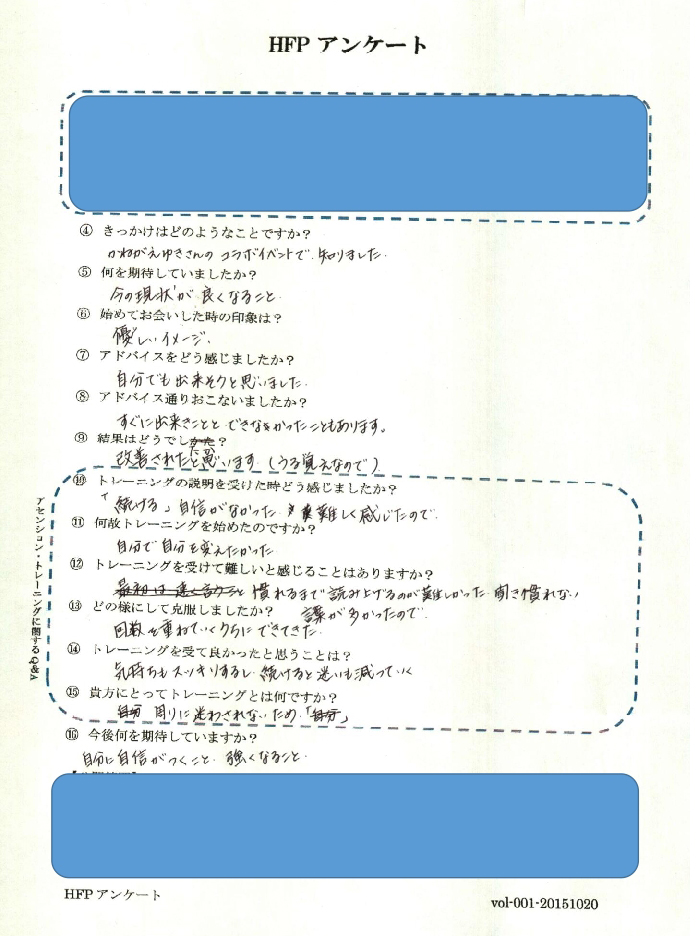 HFP アンケート
④ きっかけはどのようなことですか?
かねがえゆきさんの コラボイベントで 知りました.
⑤ 何を期待していましたか?
今の現状が 良くなること.
⑥ 始めてお会いした時の印象は?
優しいイメージ.
⑦ アドバイスをどう感じましたか?
自分でも出来そうと思いました.
⑧ アドバイス通りおこないましたか?
すぐに出来ことと できなかったこともあります。
⑨ 結果はどうでしたか?
改善されたと思います (うる覚えなので)
⑩ トレーニングの説明を受けた時どう感じましたか?
「続ける」自信がなかった 難しく感じたので.
⑪ 何故トレーニングを始めたのですか?
自分で自分を変えたかった
⑫ トレーニングを受けて難しいと感じることはありますか?
慣れるまで読み上げるのが難しかった 聞き慣れない
⑬ どの様にして克服しましたか?
言葉が多かったので.
回数を重ねていくうちにできてきた.
⑭ トレーニングを受て良かったと思うことは?
気持ちもスッキリするし 続けると迷いも減っていく
⑮ 貴方にとってトレーニングとは何ですか?
周りに迷わされないため「自分」
⑯ 今後何を期待していますか?
自分に自信がつくこと 強くなること.
アセンション・トレーニングに関するQ&A
HFP アンケート
vol-001-20151020